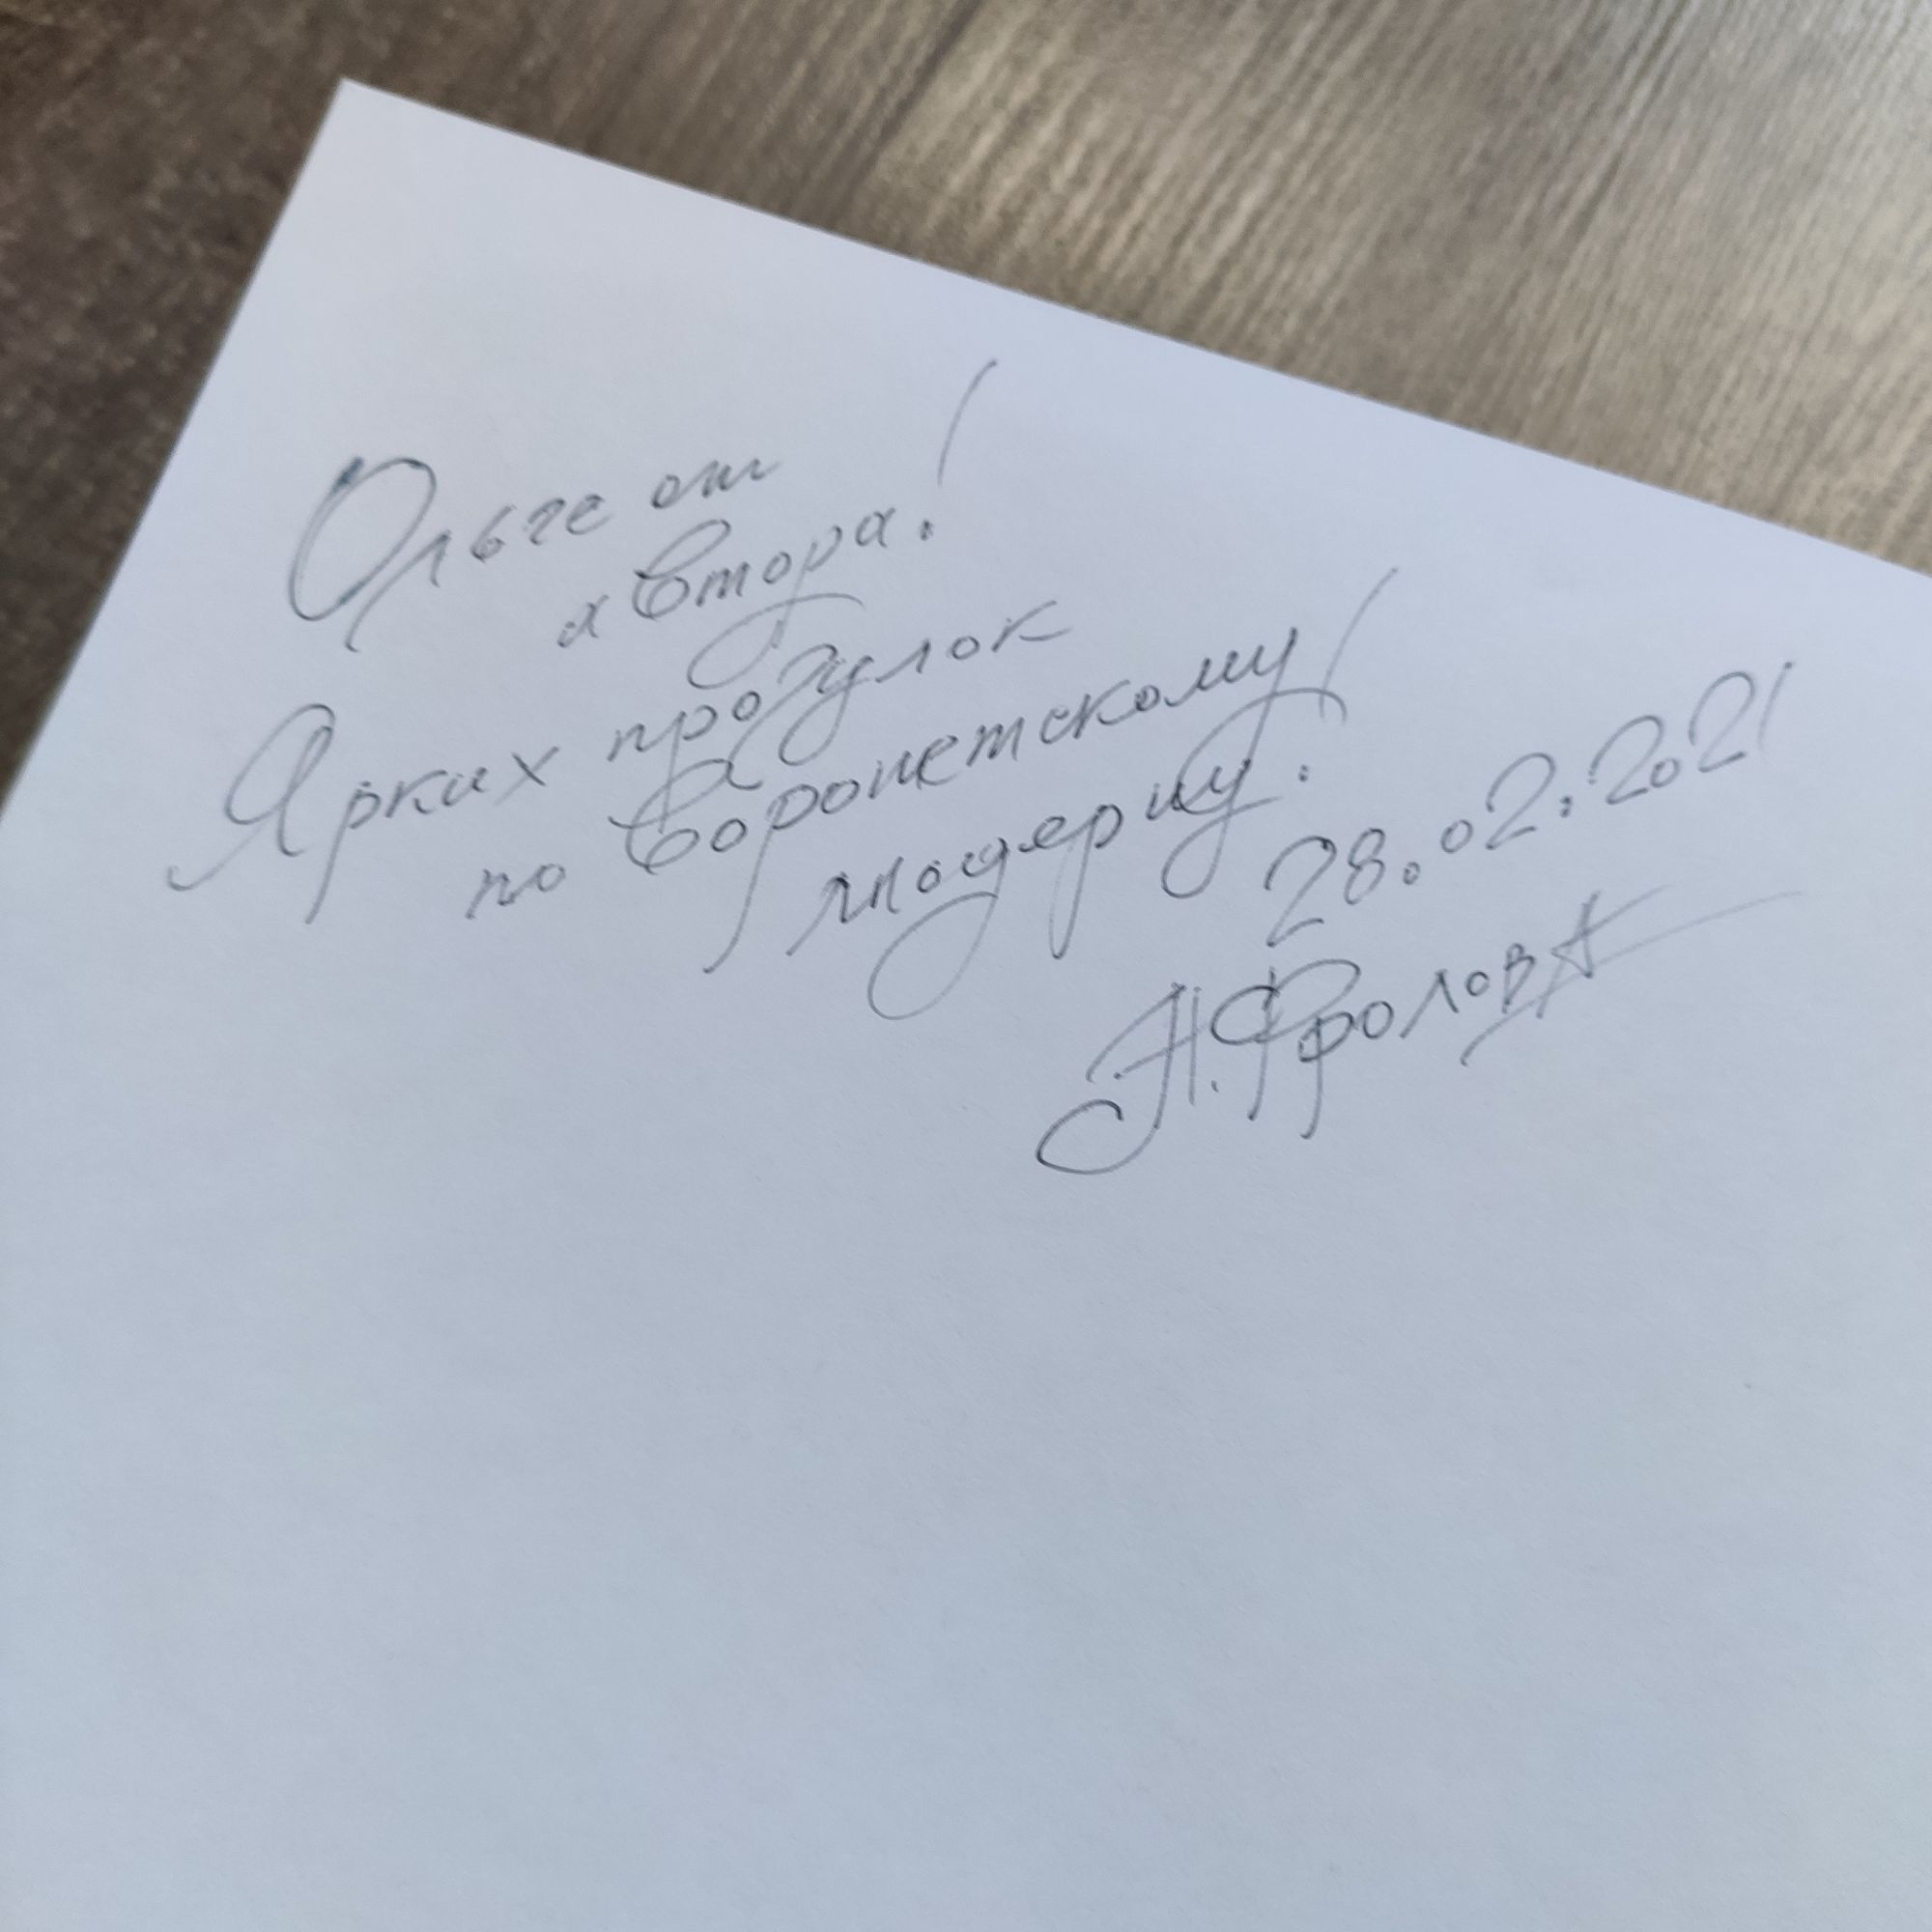 Ольге от
автора!
Ярких прогулок
по воронежскому
модерну!
28.02.2021
Н. Фролова